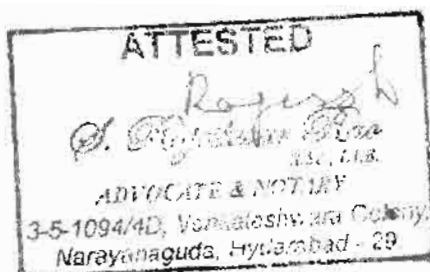 ATTESTED
S. Rao
BSc, LLB.
ADVOCATE & NOTARY
3-5-1094/4D, Venkateshwara Colony,
Narayanaguda, Hyderabad - 29.